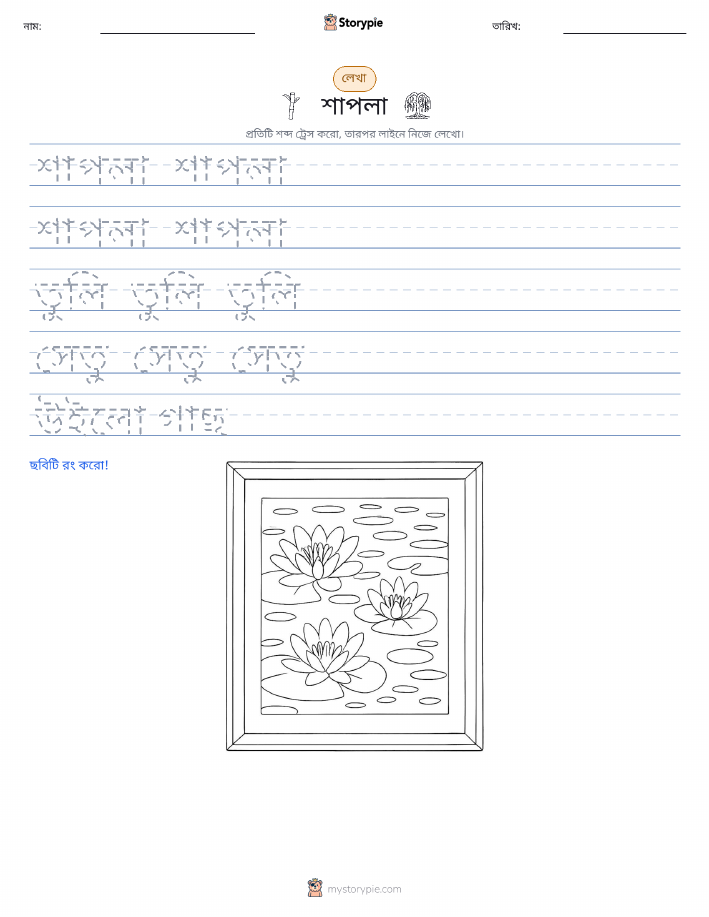 নাম:
Storypie
তারিখ:
লেখা
শাপলা
প্রতিটি শব্দ ট্রেস করো, তারপর লাইনে নিজে লেখো।
শাপলা শাপলা
শাপলা শাপলা
তুলি তুলি তুলি
সেতু সেতু সেতু
উইলো গাছ
ছবিটি রং করো!
mystorypie.com